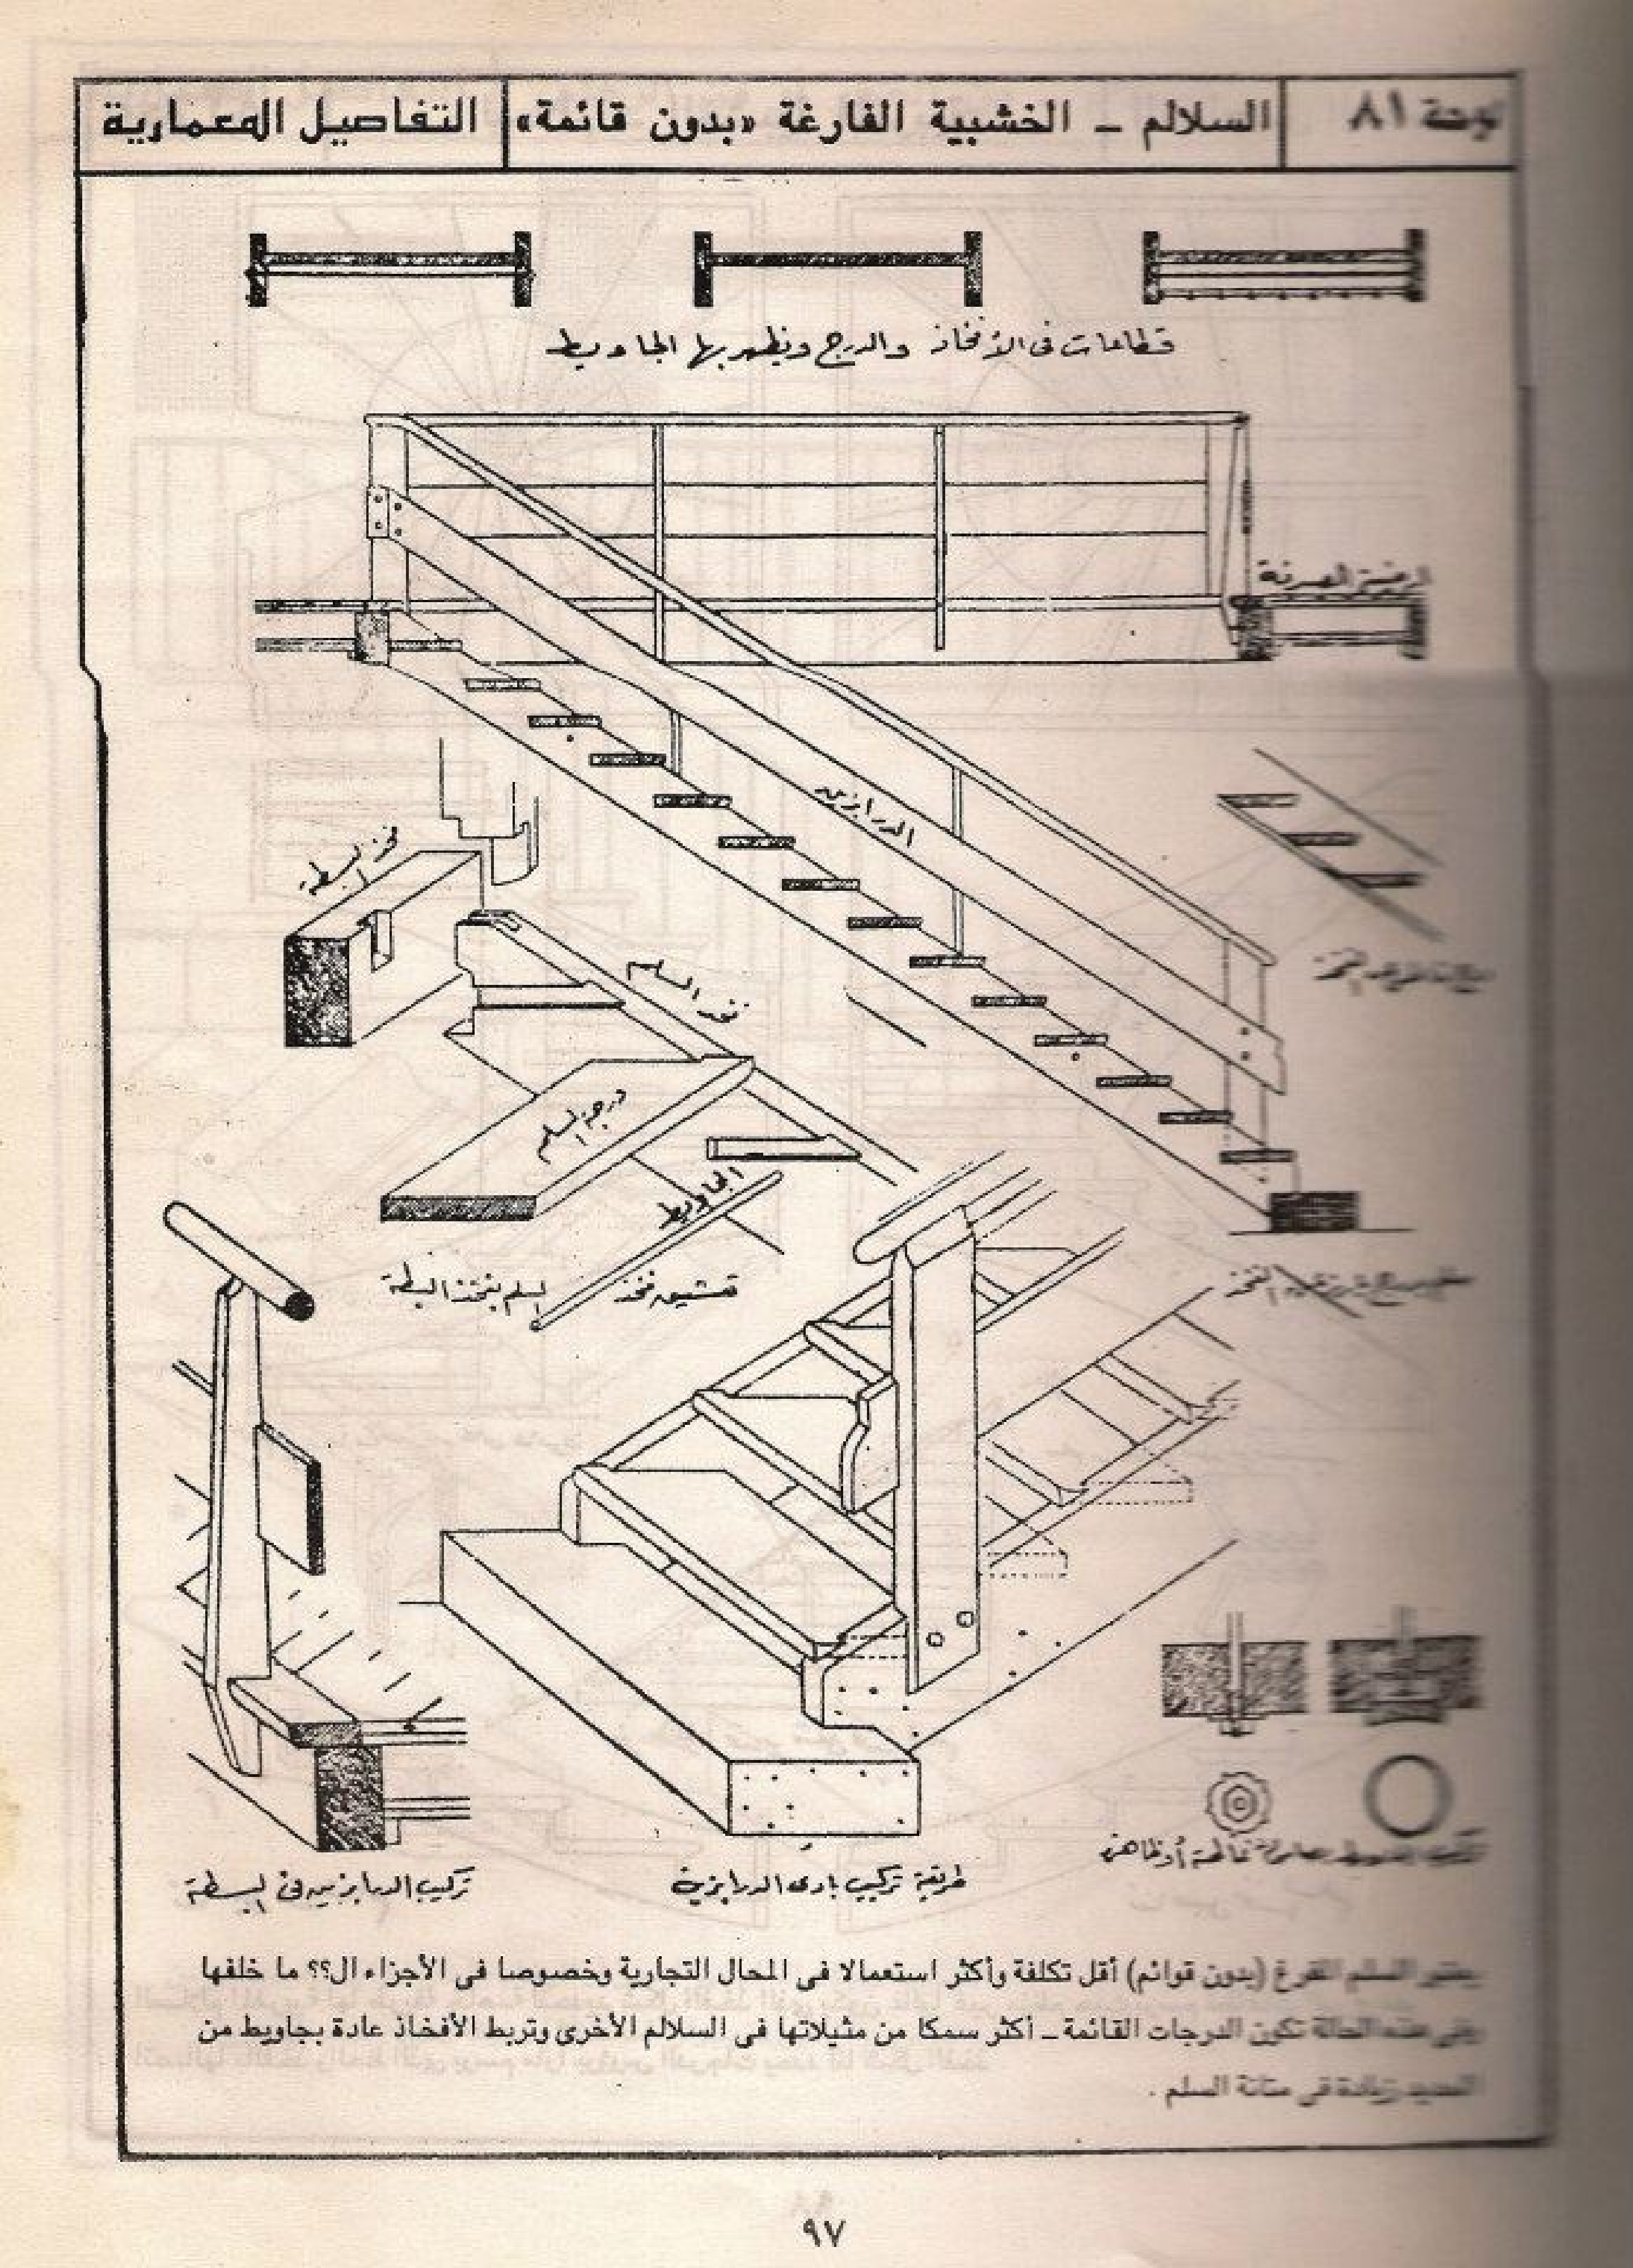 لوحة ٨١
السلالم - الخشبية الفارغة «بدون قائمة»
التفاصيل المعمارية
قطاعات فى الأفخاذ والدرج ويظهر بها الجاويط
الدرابزين
فخذ البسطة
فخذ السلم
درجة السلم
الجاويط
تعشيق فخذ السلم بفخذ البسطة
تركيب الدرابزين فى البسطة
طريقة تركيب بادى الدرابزين
تركيب ظاهرة
يعتبر السلم المفرغ (بدون قوائم) أقل تكلفة وأكثر استعمالا فى المحال التجارية وخصوصا فى الأجزاء ال؟؟ ما خلفها
وفى هذه الحالة تكون الدرجات القائمة - أكثر سمكا من مثيلاتها فى السلالم الأخرى وتربط الأفخاذ عادة بجاويط من
الحديد زيادة فى متانة السلم .
٩٧